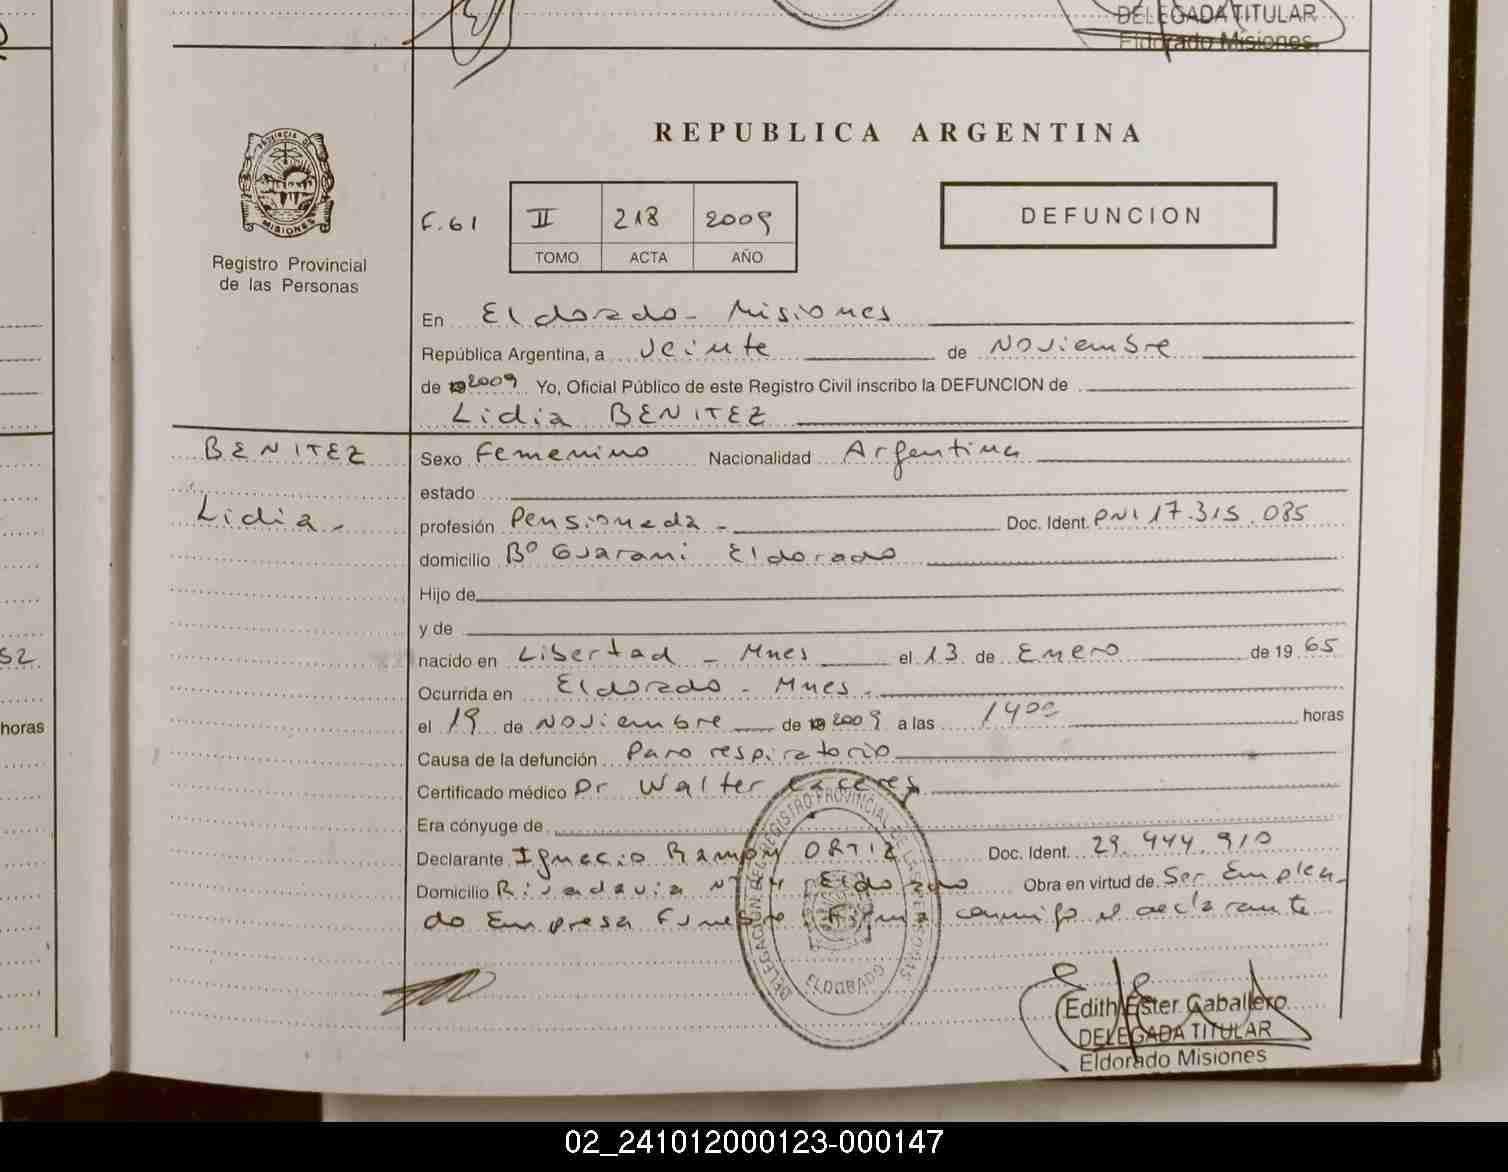 DELEGADA TITULAR
Eldorado Misiones
REPUBLICA ARGENTINA
PROVINCIA DE MISIONES
Registro Provincial
de las Personas
F.61 II 218 2009
TOMO ACTA AÑO
DEFUNCION
En Eldorado - Misiones
República Argentina, a Veinte de Noviembre
de 2009 Yo, Oficial Público de este Registro Civil inscribo la DEFUNCION de
Lidia BENITEZ
BENITEZ
Lidia.-
Sexo Femenino Nacionalidad Argentina
estado
profesión Pensionada - Doc. Ident. DNI 17.315.085
domicilio Bº Guarani Eldorado
Hijo de
y de
nacido en Libertad - Mnes el 13 de Enero de 19 65
Ocurrida en Eldorado - Mnes.
el 19 de Noviembre de 2009 a las 1400 horas
Causa de la defunción Paro respiratorio
Certificado médico Dr Walter Caceres
Era cónyuge de
Declarante Ignacio Ramon ORTIZ Doc. Ident. 29.444.910
Domicilio Rivadavia Eldorado Obra en virtud de Ser Emplea-
do Empresa Funebre Firma conmigo el declarante
DELEGACION DEL REGISTRO PROVINCIAL DE LAS PERSONAS
ELDORADO
Edith Ester Caballero
DELEGADA TITULAR
Eldorado Misiones
52.
horas
02_241012000123-000147